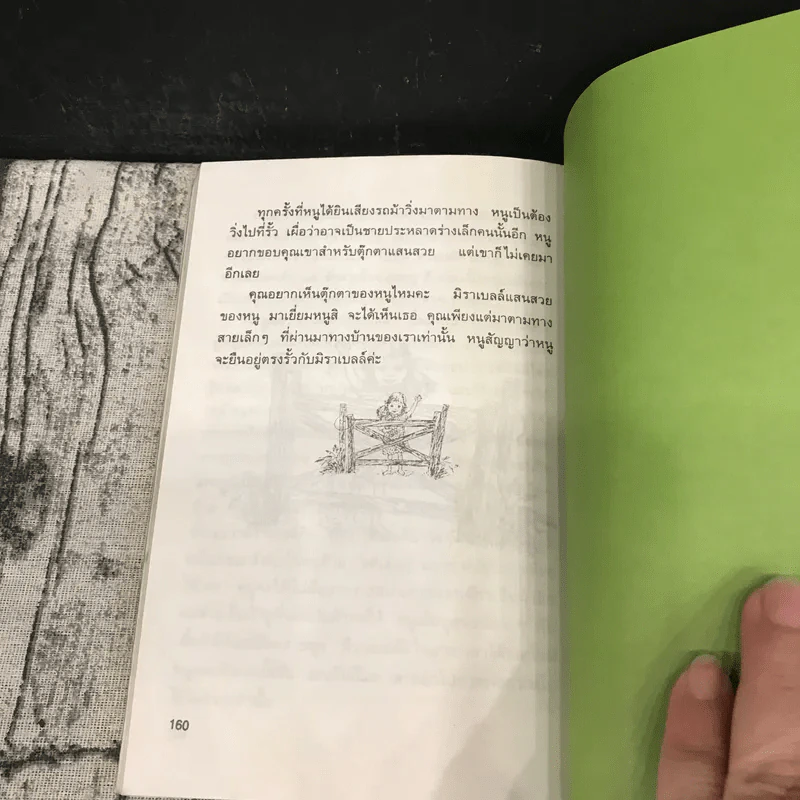 ทุกครั้งที่หนูได้ยินเสียงรถม้าวิ่งมาตามทาง หนูเป็นต้อง
วิ่งไปที่รั้ว เผื่อว่าอาจเป็นชายประหลาดร่างเล็กคนนั้นอีก หนู
อยากขอบคุณเขาสำหรับตุ๊กตาแสนสวย แต่เขาก็ไม่เคยมา
อีกเลย
คุณอยากเห็นตุ๊กตาของหนูไหมคะ มิราเบลล์แสนสวย
ของหนู มาเยี่ยมหนูสิ จะได้เห็นเธอ คุณเพียงแต่มาตามทาง
สายเล็กๆ ที่ผ่านมาทางบ้านของเราเท่านั้น หนูสัญญาว่าหนู
จะยืนอยู่ตรงรั้วกับมิราเบลล์ค่ะ
160